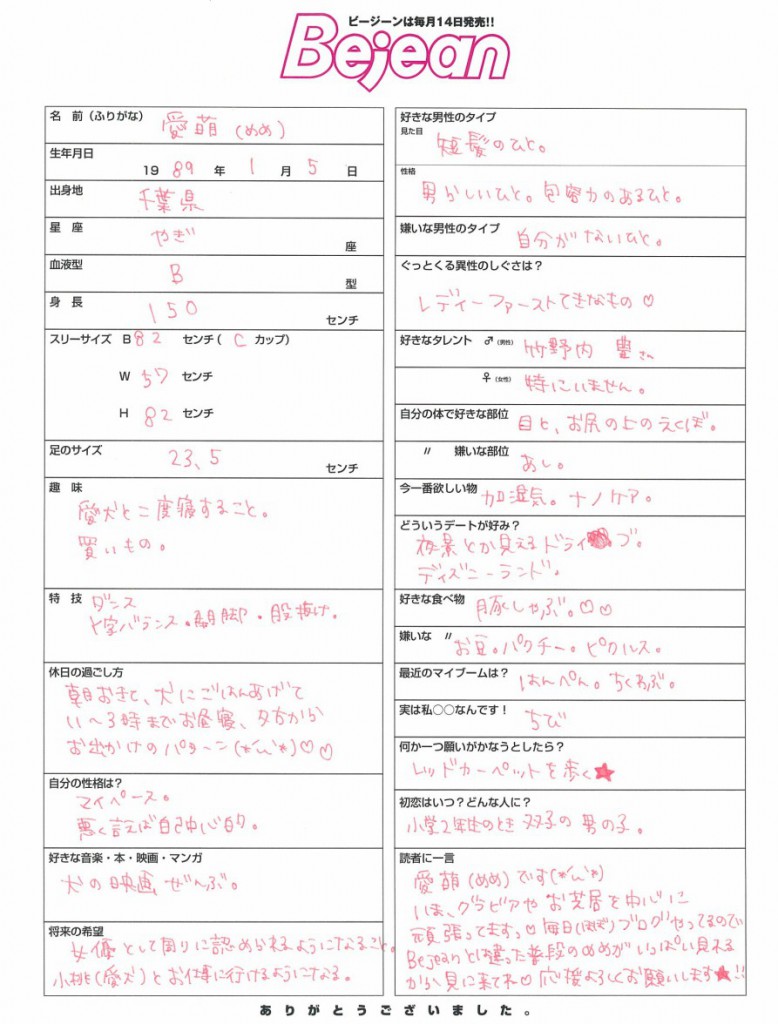 ビージーンは毎月14日発売!!
Bejean
名 前(ふりがな) 愛萌(めめ)
生年月日
1989年1月5日
出身地 千葉県
星 座 やぎ座
血液型 B型
身 長 150センチ
スリーサイズ B82センチ(Cカップ)
W57センチ
H82センチ
足のサイズ 23.5センチ
趣 味
愛犬と二度寝すること。
買いもの。
特 技 ダンス
Y字バランス。開脚。股抜け。
休日の過ごし方
朝おきて、犬にごはんあげて
い〜3時までお昼寝、夕方から
お出かけのパターン(*'ω'*)♡♡
自分の性格は?
マイペース。
悪く言えば自己中心的。
好きな音楽・本・映画・マンガ
犬の映画ぜんぶ。
将来の希望
女優として周りに認められるようになること。
小桃(愛犬)とお仕事に行けるようになる。
好きな男性のタイプ
見た目 短髪のひと。
性格
男らしいひと。包容力のあるひと。
嫌いな男性のタイプ 自分がないひと。
ぐっとくる異性のしぐさは?
レディーファーストてきなもの♡
好きなタレント ♂(男性) 竹野内 豊さん
♀(女性) 特にいません。
自分の体で好きな部位 目と、お尻の上のえくぼ。
〃 嫌いな部位 あし。
今一番欲しい物 加湿気。ナノケア。
どういうデートが好み?
夜景とか見えるドライブ。
ディズニーランド。
好きな食べ物 豚しゃぶ。♡♡
嫌いな 〃 お豆。パクチー。ピクルス。
最近のマイブームは? はんぺん。ちくわぶ。
実は私○○なんです! ちび
何か一つ願いがかなうとしたら?
レッドカーペットを歩く★
初恋はいつ?どんな人に?
小学2年生のとき 双子の男の子。
読者に一言
愛萌(めめ)です(*'ω'*)
いま、グラビアやお芝居を中心に
頑張ってます。♡毎日(ほぼ)ブログやってるので
Bejeanとは違った普段のめめがいっぱい見れる
から見に来てね♡応援よろしくお願いします★!!
ありがとうございました。